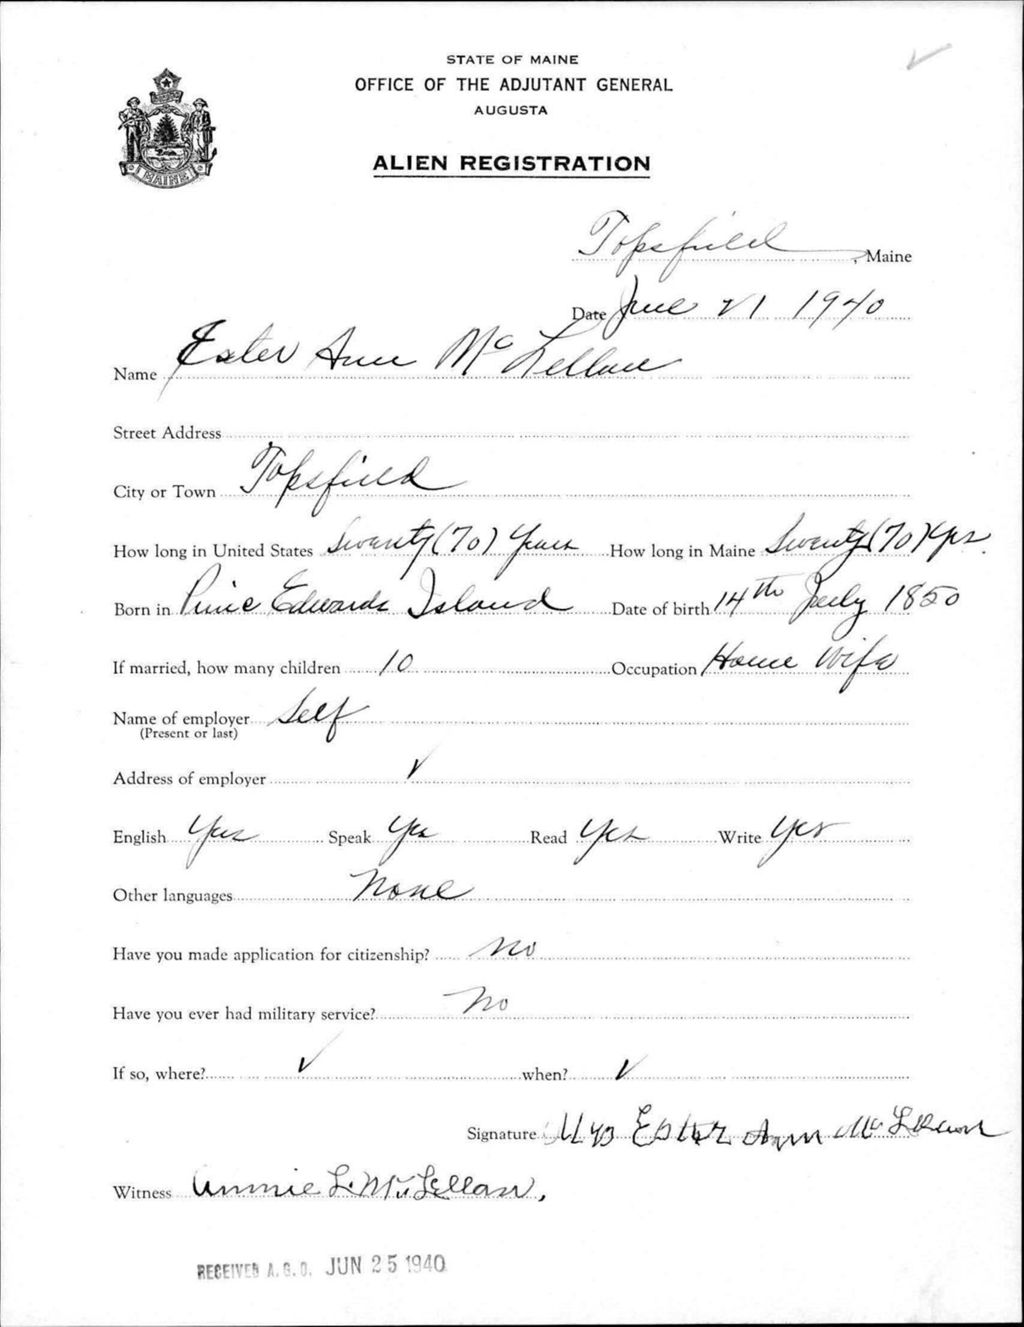 STATE OF MAINE
OFFICE OF THE ADJUTANT GENERAL
AUGUSTA
MAINE
ALIEN REGISTRATION
Topsfield, Maine
Date June 21 1940
Name Ester Ann McLellan
Street Address
City or Town Topsfield
How long in United States Seventy (70) Years How long in Maine Seventy (70) Yrs.
Born in Prince Edwards Island Date of birth 14th July 1850
If married, how many children 10 Occupation House Wife
Name of employer Self
(Present or last)
Address of employer ✓
English Yes Speak Yes Read Yes Write Yes
Other languages None
Have you made application for citizenship? No
Have you ever had military service? No
If so, where? ✓ when? ✓
Signature Mrs Ester Ann McLellan
Witness Annie L. McLellan.
RECEIVED A.G.O. JUN 25 1940